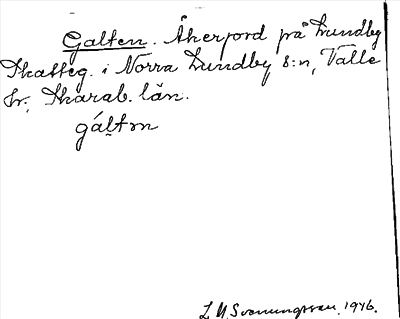 Galten. Åkerjord på Lundby
Skatteg. i Norra Lundby s:n, Valle
hr, Skarab. län.
gáltn
L. M. Svenungsson. 1946.